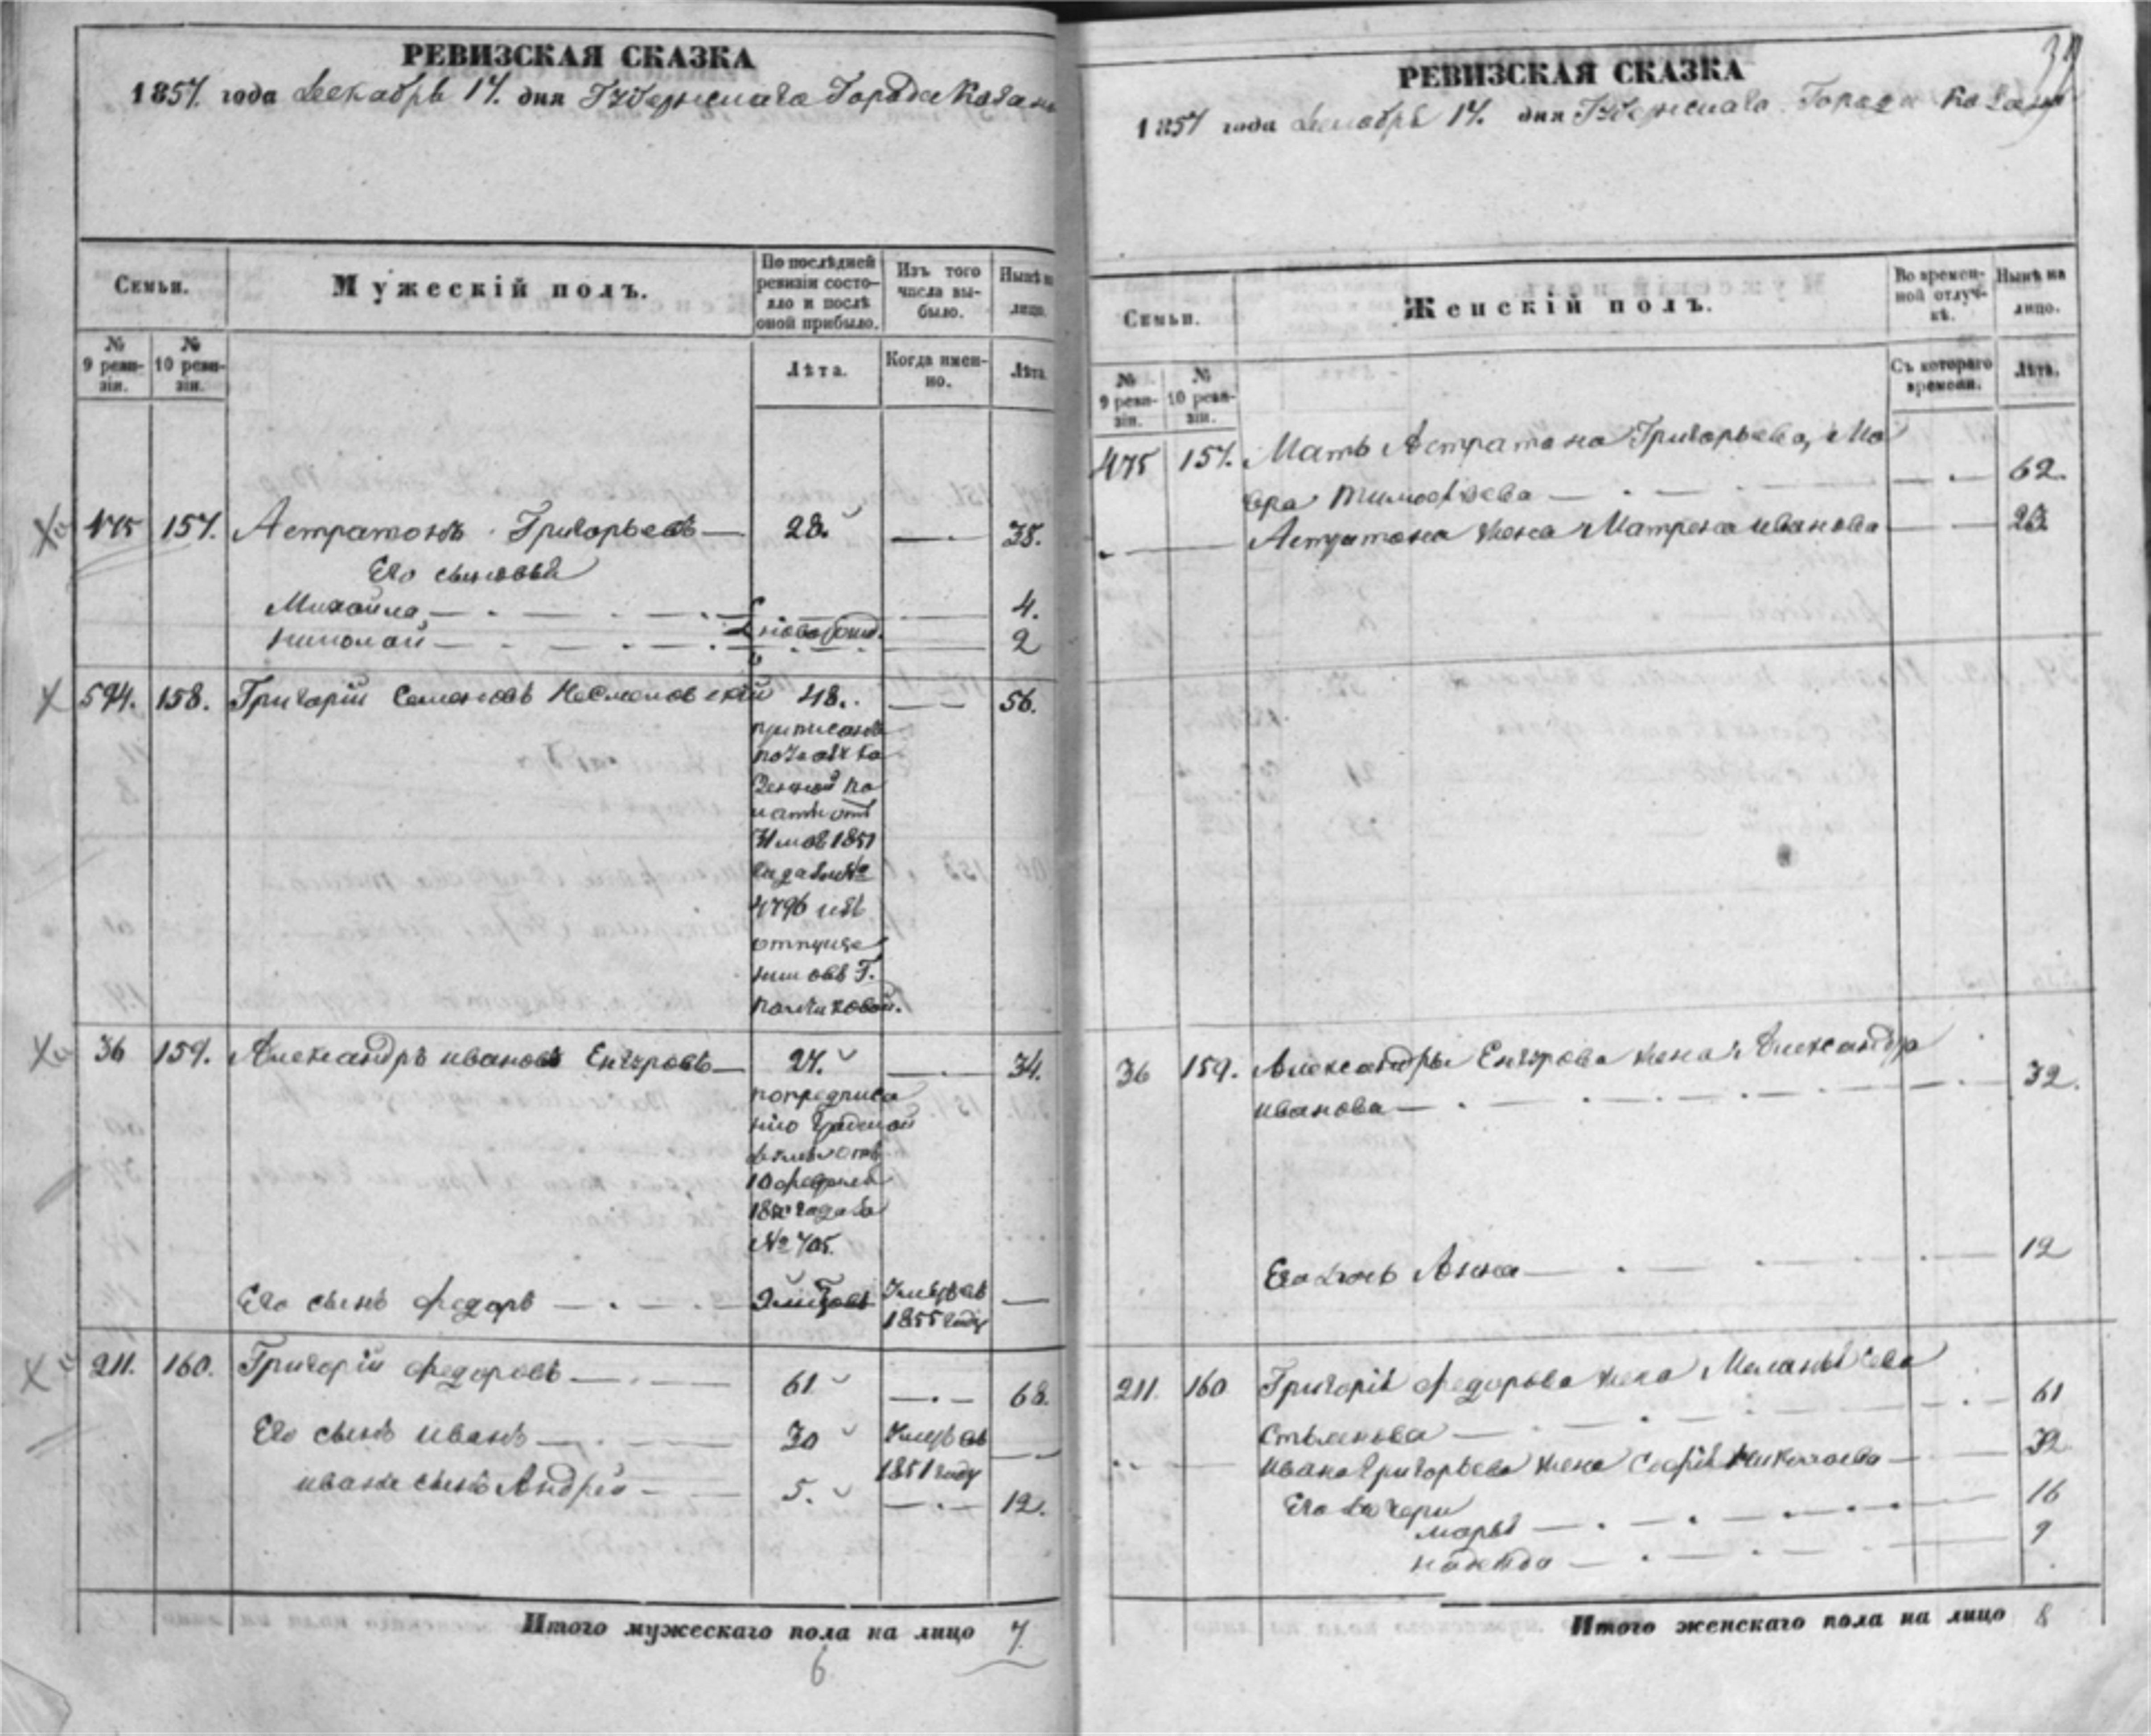 РЕВИЗСКАЯ СКАЗКА
1857. года Декабря 17. дня Губернскаго Города Казани
Семьи.
Мужескій полъ.
По послѣдней ревизіи состояло и послѣ оной прибыло.
Изъ того числа выбыло.
Нынѣ на лицо.
№ 9 ревизіи.
№ 10 ревизіи.
Лѣта.
Когда именно.
Лѣта.
475 157. Астратонъ Григорьевъ — 28. — 38.
Его сыновья
Михайла — 4.
Николай — новорожд. — 2
594. 158. Григорій Семеновъ 48. — 56.
приписанъ
по указу Ка
зенной Па
латы отъ
1851
года за №
4796 изъ
отпуще
36 159. Александръ Ивановъ Енгуровъ — 27. — 34.
по предписа
нію Градской
Думы отъ
10 февраля
года за
№ 705.
Его сынъ Федоръ — Умеръ въ —
1855 году
211. 160. Григорій Федоровъ — 61 — 68.
Его сынъ Иванъ — 30 Умеръ въ —
1851 году
Ивана сынъ Андрей — 5. — 12.
Итого мужескаго пола на лицо 7
6
РЕВИЗСКАЯ СКАЗКА
1857 года Декабря 17. дня Губернскаго Города Казани
Семьи.
Женскій полъ.
Во временной отлучкѣ.
Нынѣ на лицо.
№ 9 ревизіи.
№ 10 ревизіи.
Съ котораго времени.
Лѣта.
475 157. Мать Астратона Григорьева, Ма
вра Тимофѣева — 62.
Астратона жена Матрена Иванова —
36 159. Александры Енгурова жена Александра
Иванова — 32.
Его дочь Анна — 12
211. 160 Григорія Федорова жена Маланья Сева
стьянова — 61
Ивана Григорьева жена Софья Николаева — 32
Его дочери
Марья — 16
Надежда — 9
Итого женскаго пола на лицо 8